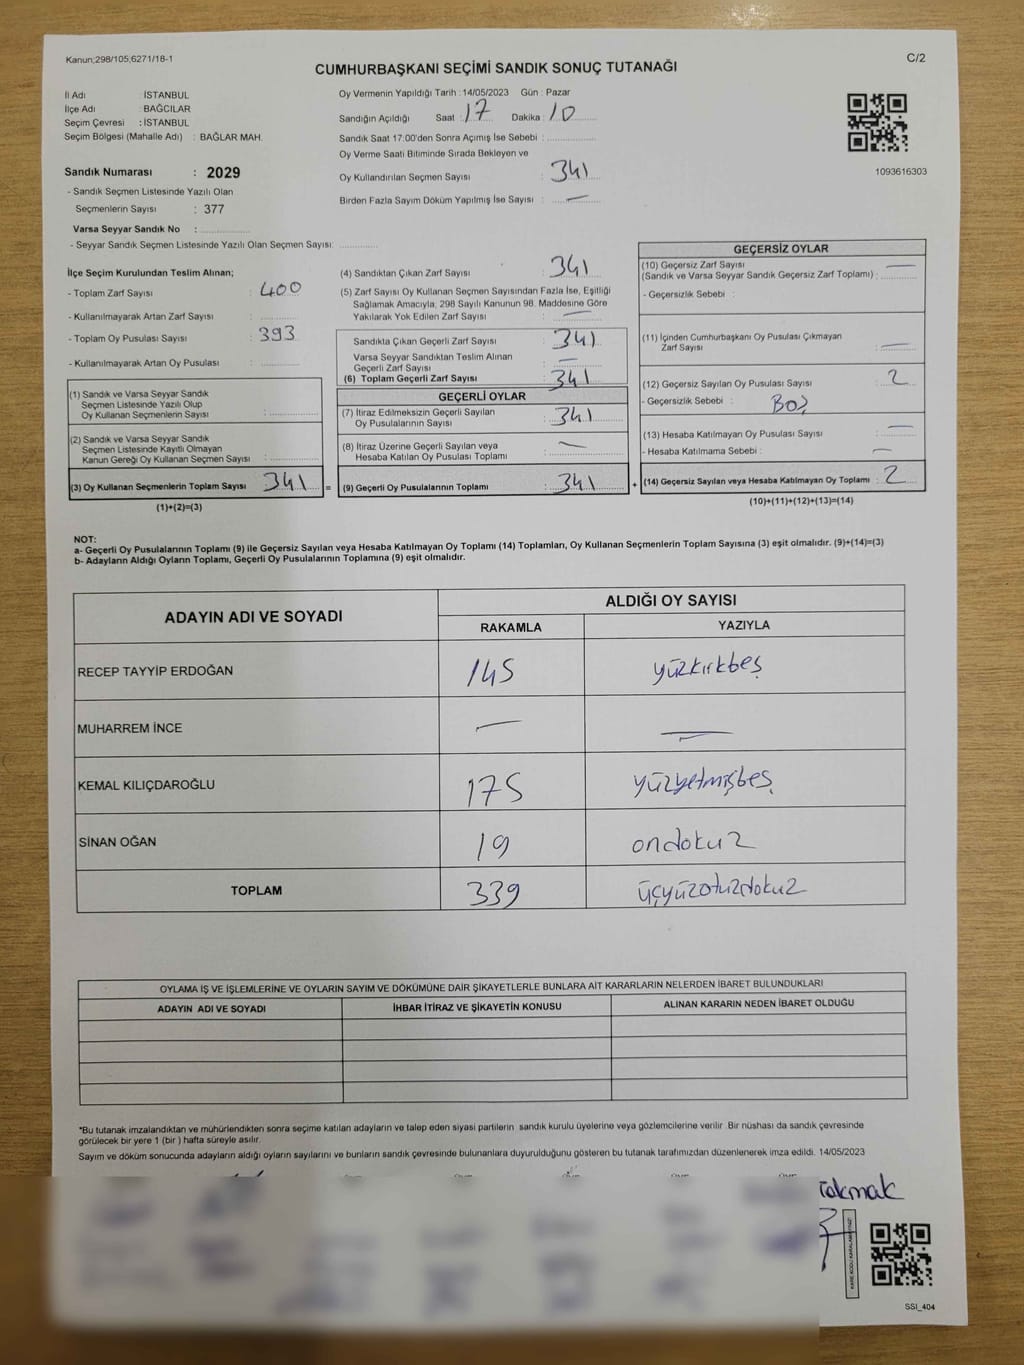 Kanun;298/105;6271/18-1
C/2
CUMHURBAŞKANI SEÇİMİ SANDIK SONUÇ TUTANAĞI
İl Adı : İSTANBUL
İlçe Adı : BAĞCILAR
Seçim Çevresi : İSTANBUL
Seçim Bölgesi (Mahalle Adı) : BAĞLAR MAH.
Sandık Numarası : 2029
- Sandık Seçmen Listesinde Yazılı Olan
Seçmenlerin Sayısı : 377
Varsa Seyyar Sandık No :
- Seyyar Sandık Seçmen Listesinde Yazılı Olan Seçmen Sayısı:
Oy Vermenin Yapıldığı Tarih : 14/05/2023 Gün : Pazar
Sandığın Açıldığı Saat : 17 Dakika : 10
Sandık Saat 17:00'den Sonra Açımış İse Sebebi :
Oy Verme Saati Bitiminde Sırada Bekleyen ve
Oy Kullandırılan Seçmen Sayısı : 341
Birden Fazla Sayım Döküm Yapılmış İse Sayısı : —
1093616303
İlçe Seçim Kurulundan Teslim Alınan;
- Toplam Zarf Sayısı : 400
- Kullanılmayarak Artan Zarf Sayısı :
- Toplam Oy Pusulası Sayısı : 393
- Kullanılmayarak Artan Oy Pusulası :
(1) Sandık ve Varsa Seyyar Sandık
Seçmen Listesinde Yazılı Olup
Oy Kullanan Seçmenlerin Sayısı :
(2) Sandık ve Varsa Seyyar Sandık
Seçmen Listesinde Kayıtlı Olmayan
Kanun Gereği Oy Kullanan Seçmen Sayısı :
(3) Oy Kullanan Seçmenlerin Toplam Sayısı : 341 =
(1)+(2)=(3)
(4) Sandıktan Çıkan Zarf Sayısı : 341
(5) Zarf Sayısı Oy Kullanan Seçmen Sayısından Fazla İse, Eşitliği
Sağlamak Amacıyla, 298 Sayılı Kanunun 98. Maddesine Göre
Yakılarak Yok Edilen Zarf Sayısı : —
Sandıkta Çıkan Geçerli Zarf Sayısı : 341
Varsa Seyyar Sandıktan Teslim Alınan
Geçerli Zarf Sayısı : —
(6) Toplam Geçerli Zarf Sayısı : 341
GEÇERLİ OYLAR
(7) İtiraz Edilmeksizin Geçerli Sayılan
Oy Pusulalarının Sayısı : 341
(8) İtiraz Üzerine Geçerli Sayılan veya
Hesaba Katılan Oy Pusulası Toplamı : —
(9) Geçerli Oy Pusulalarının Toplamı : 341 +
GEÇERSİZ OYLAR
(10) Geçersiz Zarf Sayısı
(Sandık ve Varsa Seyyar Sandık Geçersiz Zarf Toplamı) : —
- Geçersizlik Sebebi :
(11) İçinden Cumhurbaşkanı Oy Pusulası Çıkmayan
Zarf Sayısı : —
(12) Geçersiz Sayılan Oy Pusulası Sayısı : 2
- Geçersizlik Sebebi : BOŞ
(13) Hesaba Katılmayan Oy Pusulası Sayısı : —
- Hesaba Katılmama Sebebi : —
(14) Geçersiz Sayılan veya Hesaba Katılmayan Oy Toplamı : 2
(10)+(11)+(12)+(13)=(14)
NOT:
a- Geçerli Oy Pusulalarının Toplamı (9) ile Geçersiz Sayılan veya Hesaba Katılmayan Oy Toplamı (14) Toplamları, Oy Kullanan Seçmenlerin Toplam Sayısına (3) eşit olmalıdır. (9)+(14)=(3)
b- Adayların Aldığı Oyların Toplamı, Geçerli Oy Pusulalarının Toplamına (9) eşit olmalıdır.
ADAYIN ADI VE SOYADI
ALDIĞI OY SAYISI
RAKAMLA YAZIYLA
RECEP TAYYİP ERDOĞAN 145 yüzkırkbeş
MUHARREM İNCE — —
KEMAL KILIÇDAROĞLU 175 yüzyetmişbeş
SİNAN OĞAN 19 ondokuz
TOPLAM 339 üçyüzotuzdokuz
OYLAMA İŞ VE İŞLEMLERİNE VE OYLARIN SAYIM VE DÖKÜMÜNE DAİR ŞİKAYETLERLE BUNLARA AİT KARARLARIN NELERDEN İBARET BULUNDUKLARI
ADAYIN ADI VE SOYADI İHBAR İTİRAZ VE ŞİKAYETİN KONUSU ALINAN KARARIN NEDEN İBARET OLDUĞU
*Bu tutanak imzalandıktan ve mühürlendikten sonra seçime katılan adayların ve talep eden siyasi partilerin sandık kurulu üyelerine veya gözlemcilerine verilir .Bir nüshası da sandık çevresinde
görülecek bir yere 1 (bir ) hafta süreyle asılır.
Sayım ve döküm sonucunda adayların aldığı oyların sayılarını ve bunların sandık çevresinde bulunanlara duyurulduğunu gösteren bu tutanak tarafımızdan düzenlenerek imza edildi. 14/05/2023
KARE KODU KARALAMAYINIZ!
SSI_404